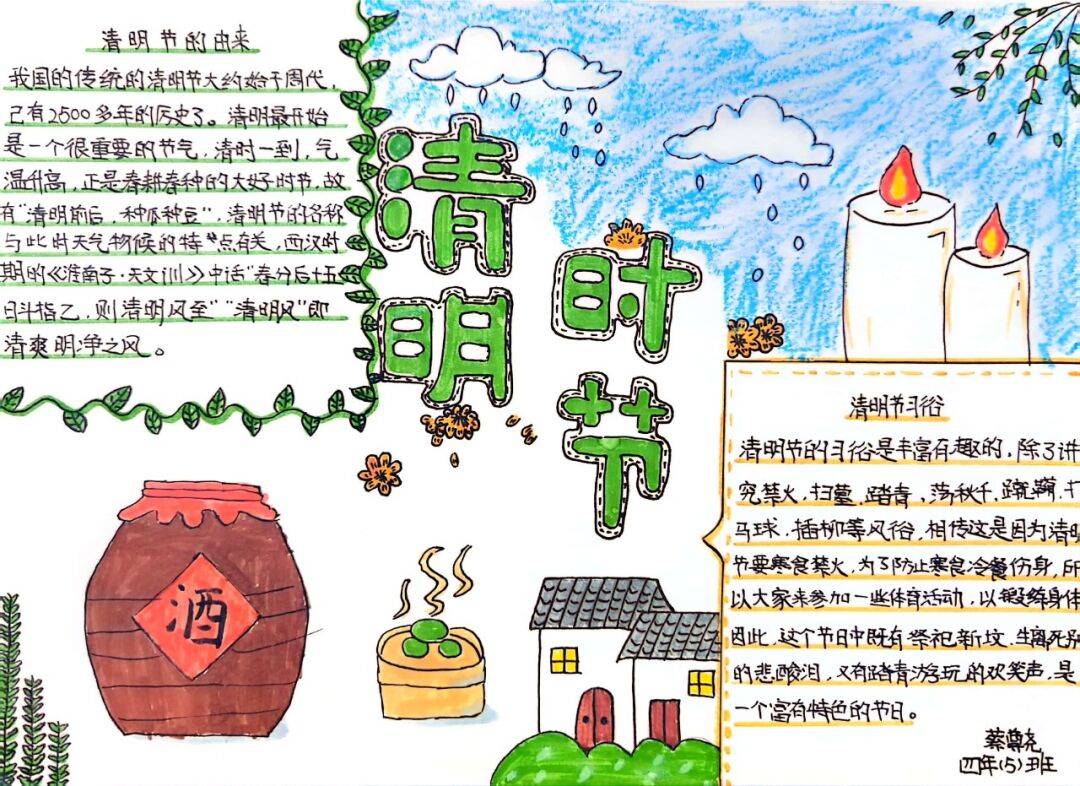 清明节的由来
我国的传统的清明节大约始于周代,
己有2500多年的历史了。清明最开始
是一个很重要的节气,清时一到,气
温升高,正是春耕春种的大好时节,故
有"清明前后,种瓜种豆",清明节的名称
与此时天气物候的特"点有关,西汉时
期的《淮南子·天文训》中话"春分后十五
日斗指乙,则清明风至""清明风"即
清爽明净之风。
清明
时节
酒
清明节习俗
清明节的习俗是丰富有趣的,除了讲
究禁火,扫墓,踏青,荡秋千,蹴鞠,打
马球,插柳等风俗,相传这是因为清明
节要寒食禁火,为了防止寒食冷餐伤身,所
以大家来参加一些体育活动,以锻练身体
因此,这个节日中既有祭祀新坟,生离死别
的悲酸泪,又有踏青游玩的欢笑声,是
一个富有特色的节日。
蔡尊尧
四年(5)班